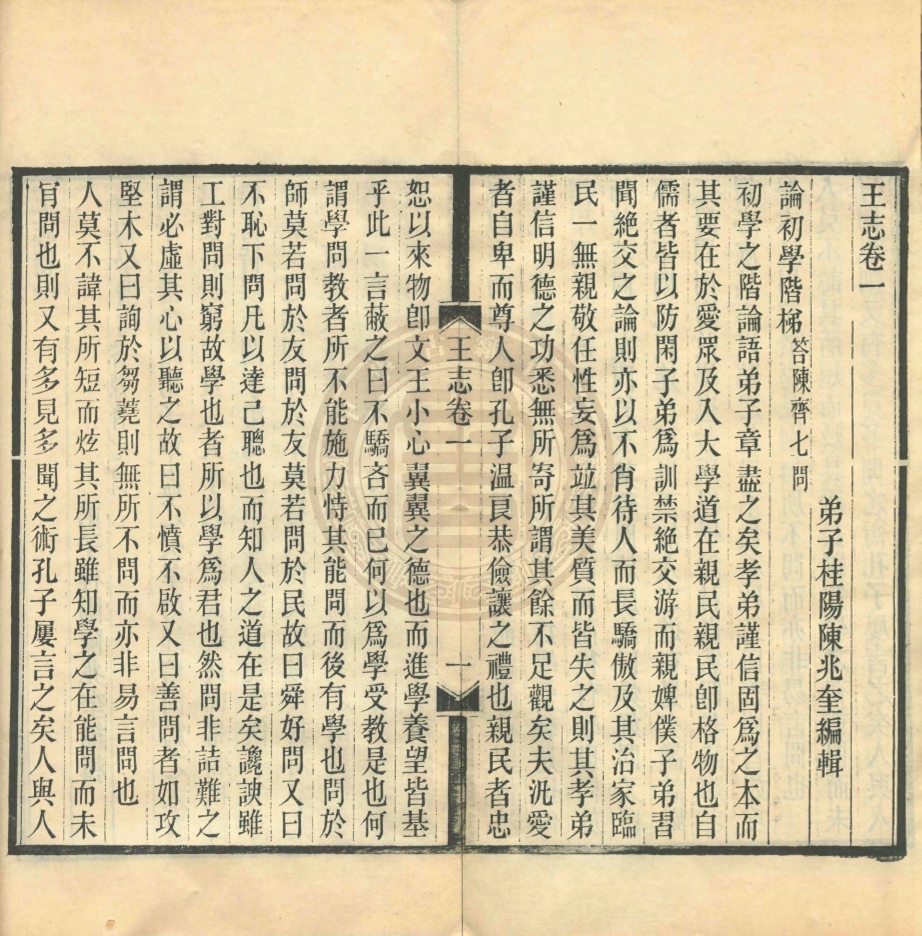 王志卷一
弟子桂陽陳兆奎編輯
論初學階梯答陳齊七問
初學之階論語弟子章盡之矣孝弟謹信固爲之本而
其要在於愛眾及入大學道在親民親民卽格物也自
儒者皆以防閑子弟爲訓禁絶交游而親婢僕子弟習
聞絶交之論則亦以不肖待人而長驕傲及其治家臨
民一無親敬任性妄爲竝其美質而皆失之則其孝弟
謹信明德之功悉無所寄所謂其餘不足觀矣夫汎愛
者自卑而尊人卽孔子温良恭儉讓之禮也親民者忠
王志卷一
一
恕以來物卽文王小心翼翼之德也而進學養望皆基
乎此一言蔽之曰不驕吝而已何以爲學受教是也何
謂學問教者所不能施力恃其能問而後有學也問於
師莫若問於友問於友莫若問於民故曰舜好問又曰
不恥下問凡以達己聰也而知人之道在是矣讒諛雖
工對問則窮故學也者所以學爲君也然問非詰難之
謂必虛其心以聽之故曰不憤不啟又曰善問者如攻
堅木又曰詢於芻蕘則無所不問而亦非易言問也
人莫不諱其所短而炫其所長雖知學之在能問而未
肎問也則又有多見多聞之術孔子屢言之矣人與人